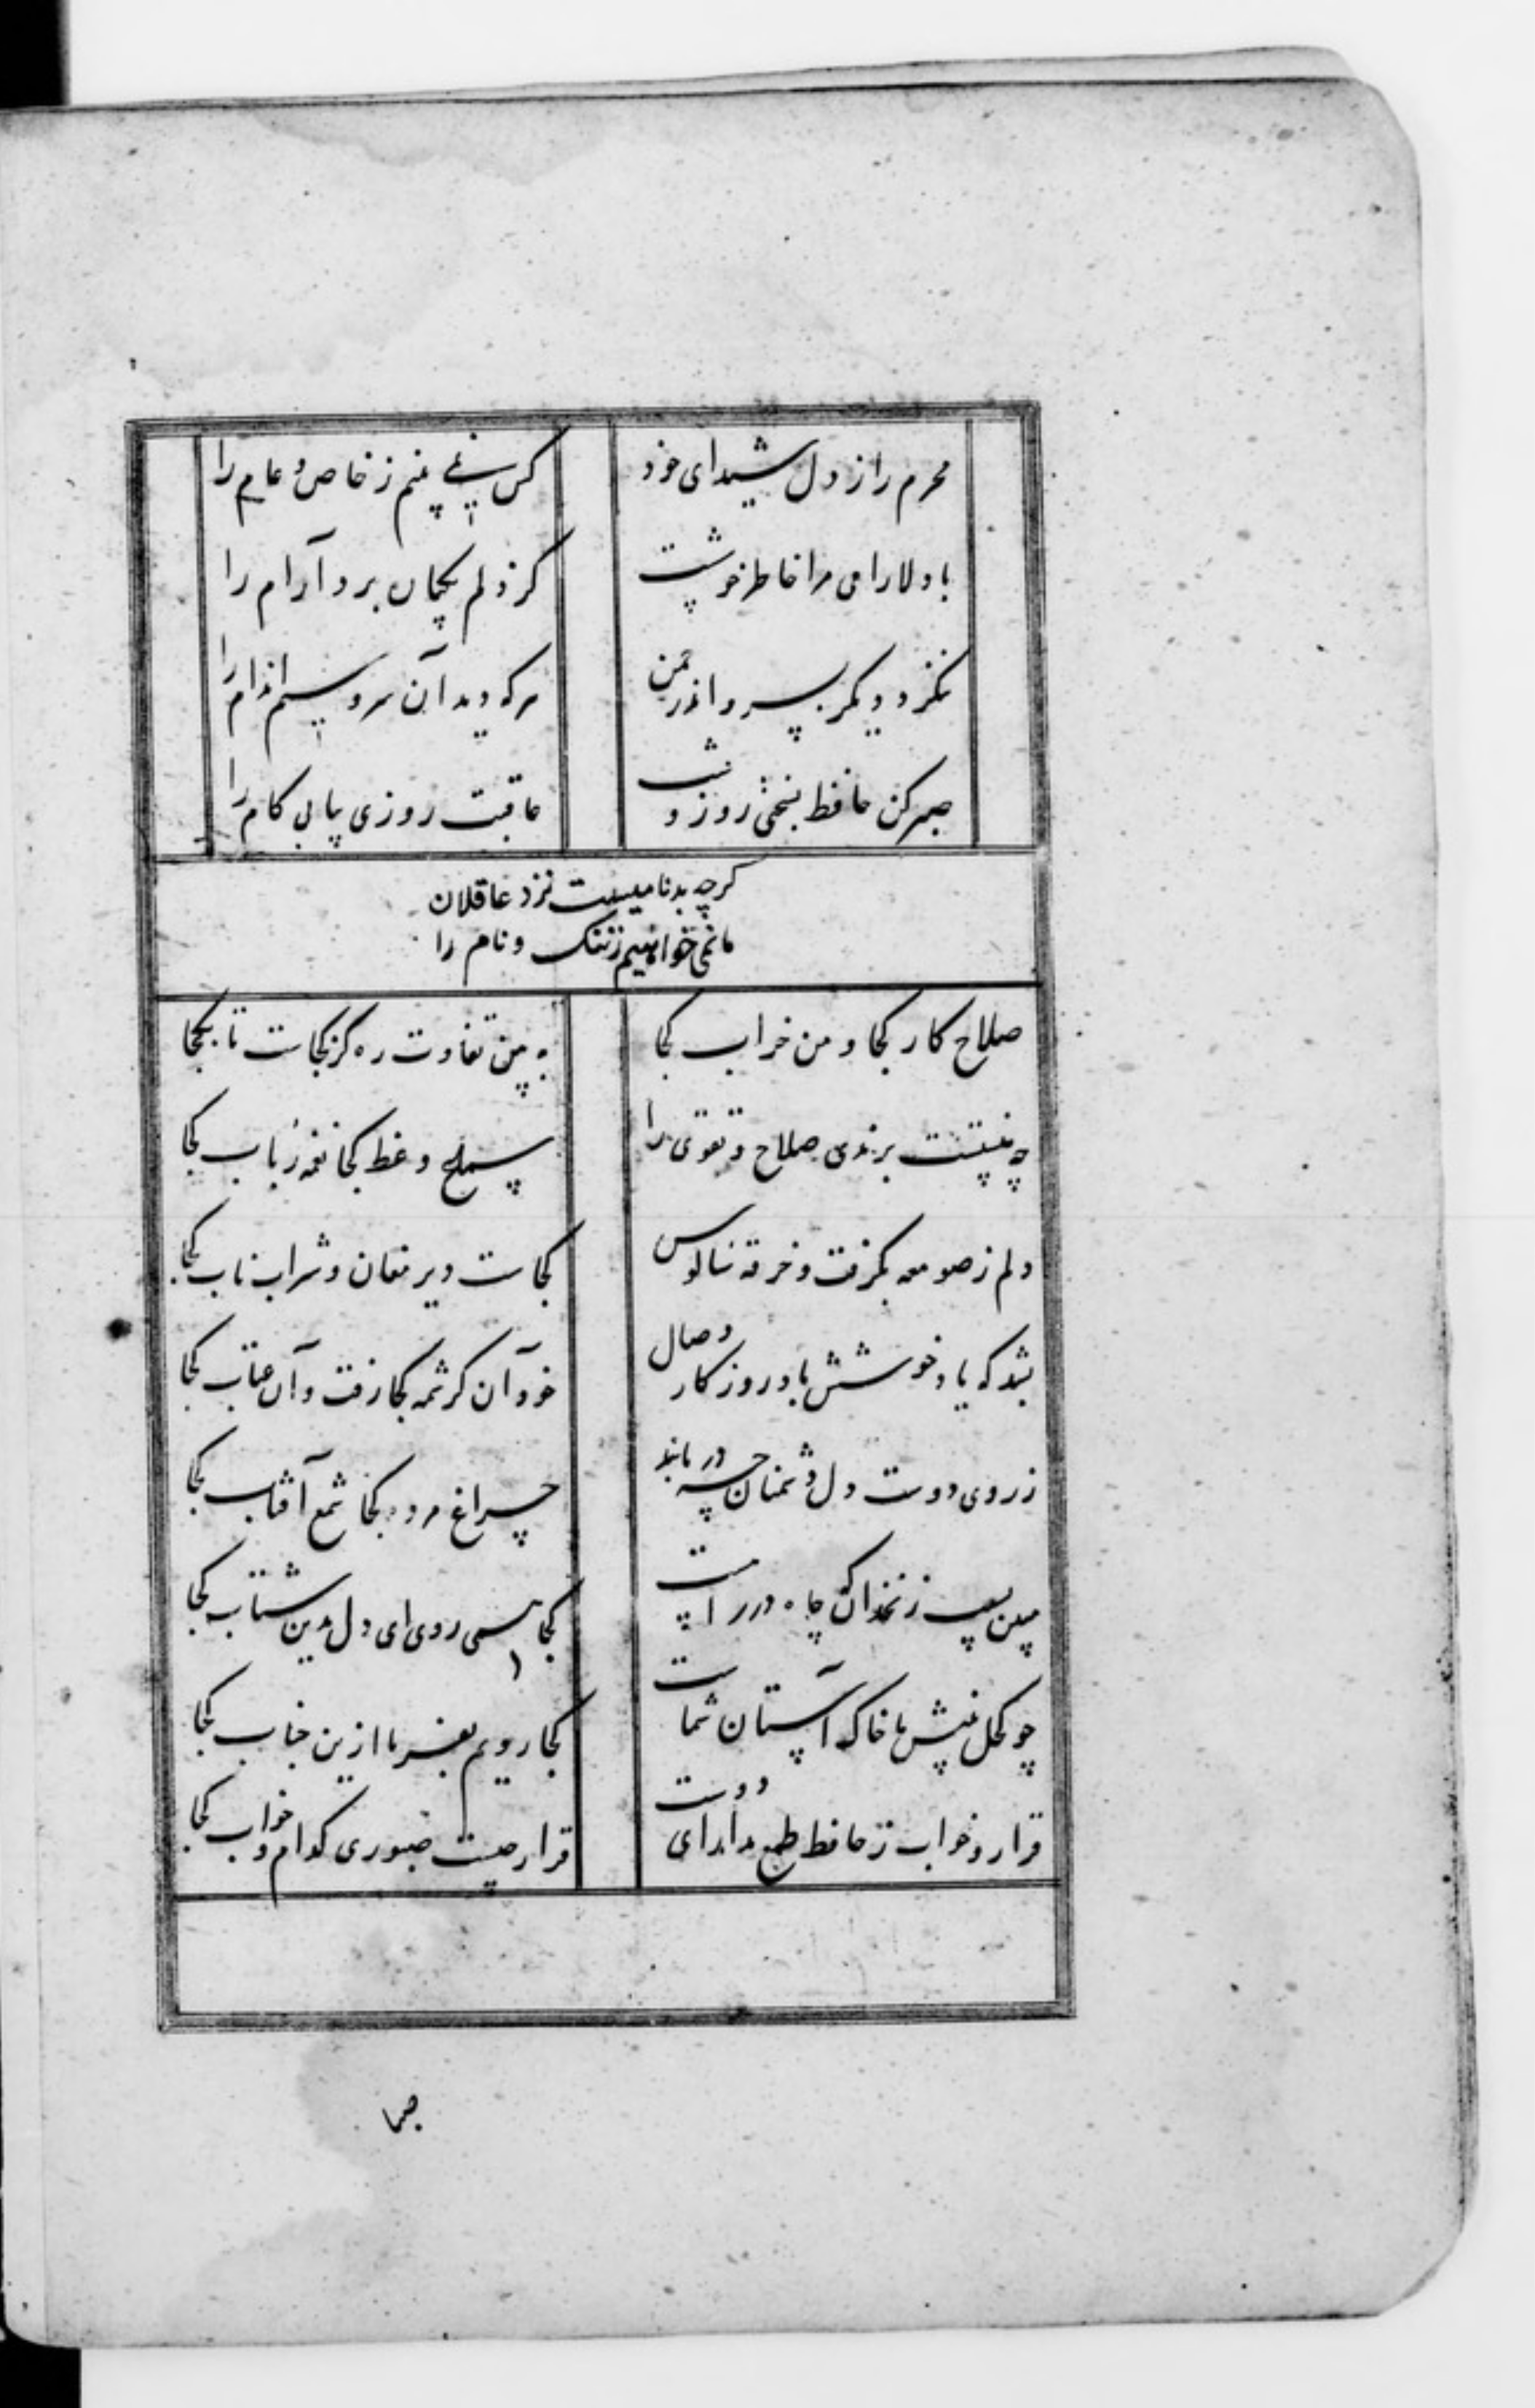 محرم راز دل شیدای خود کس نمی بینم ز خاص و عام را
با دلارامی مرا خاطر خوشست کز دلم یکباره برد آرام را
ننگرد دیگر بسرو اندر چمن هر که دید آن سرو سیم اندام را
صبر کن حافظ بسختی روز و شب عاقبت روزی بیابی کام را
کرچه بدنامیست نزد عاقلان
ما نمی خواهیم ننک و نام را
صلاح کار کجا و من خراب کجا به بین تفاوت ره کز کجاست تا بکجا
چه نسبتست برندی صلاح و تقوی را سماع وعظ کجا نغمه رباب کجا
دلم ز صومعه بگرفت و خرقه سالوس کجاست دیر مغان و شراب ناب کجا
بشد که یاد خوشش باد روزکار وصال خود آن کرشمه کجا رفت و آن عتاب کجا
ز روی دوست دل دشمنان چه دریابد چراغ مرده کجا شمع آفتاب کجا
مبین بسیب زنخدان که چاه در راهست کجا همی روی ای دل بدین شتاب کجا
چو کحل بینش ما خاک آستان شماست کجا رویم بفرما ازین جناب کجا
قرار و خواب ز حافظ طمع مدار ای دوست قرار چیست صبوری کدام و خواب کجا
صبا